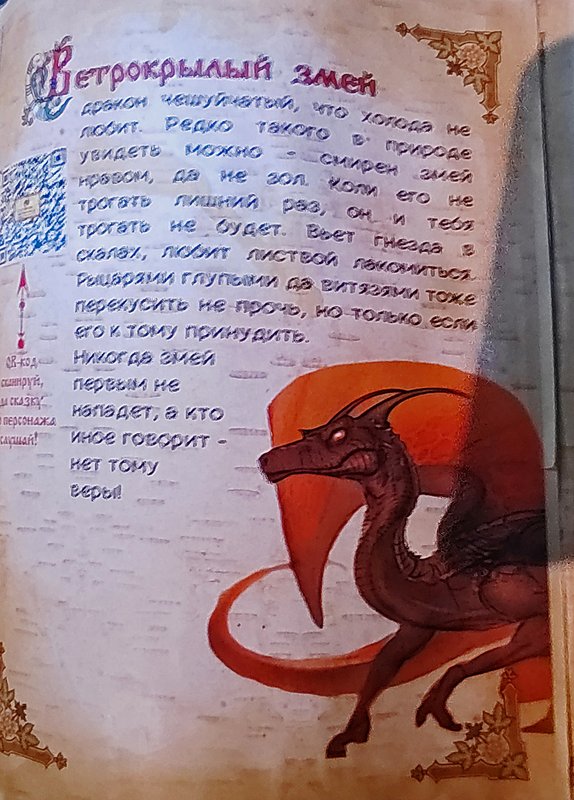 Ветрокрылый змей
дракон чешуйчатый, что холода не
любит. Редко такого в природе
увидеть можно - смирен змей
нравом, да не зол. Коли его не
трогать лишний раз, он и тебя
трогать не будет. Вьет гнезда в
скалах, любит листвой лакомиться.
Рыцарями глупыми да витязями тоже
перекусить не прочь, но только если
его к тому принудить.
Никогда змей
первым не
нападет, а кто
иное говорит -
нет тому
веры!
QR-код
сканируй,
да сказку
о персонажа
слушай!